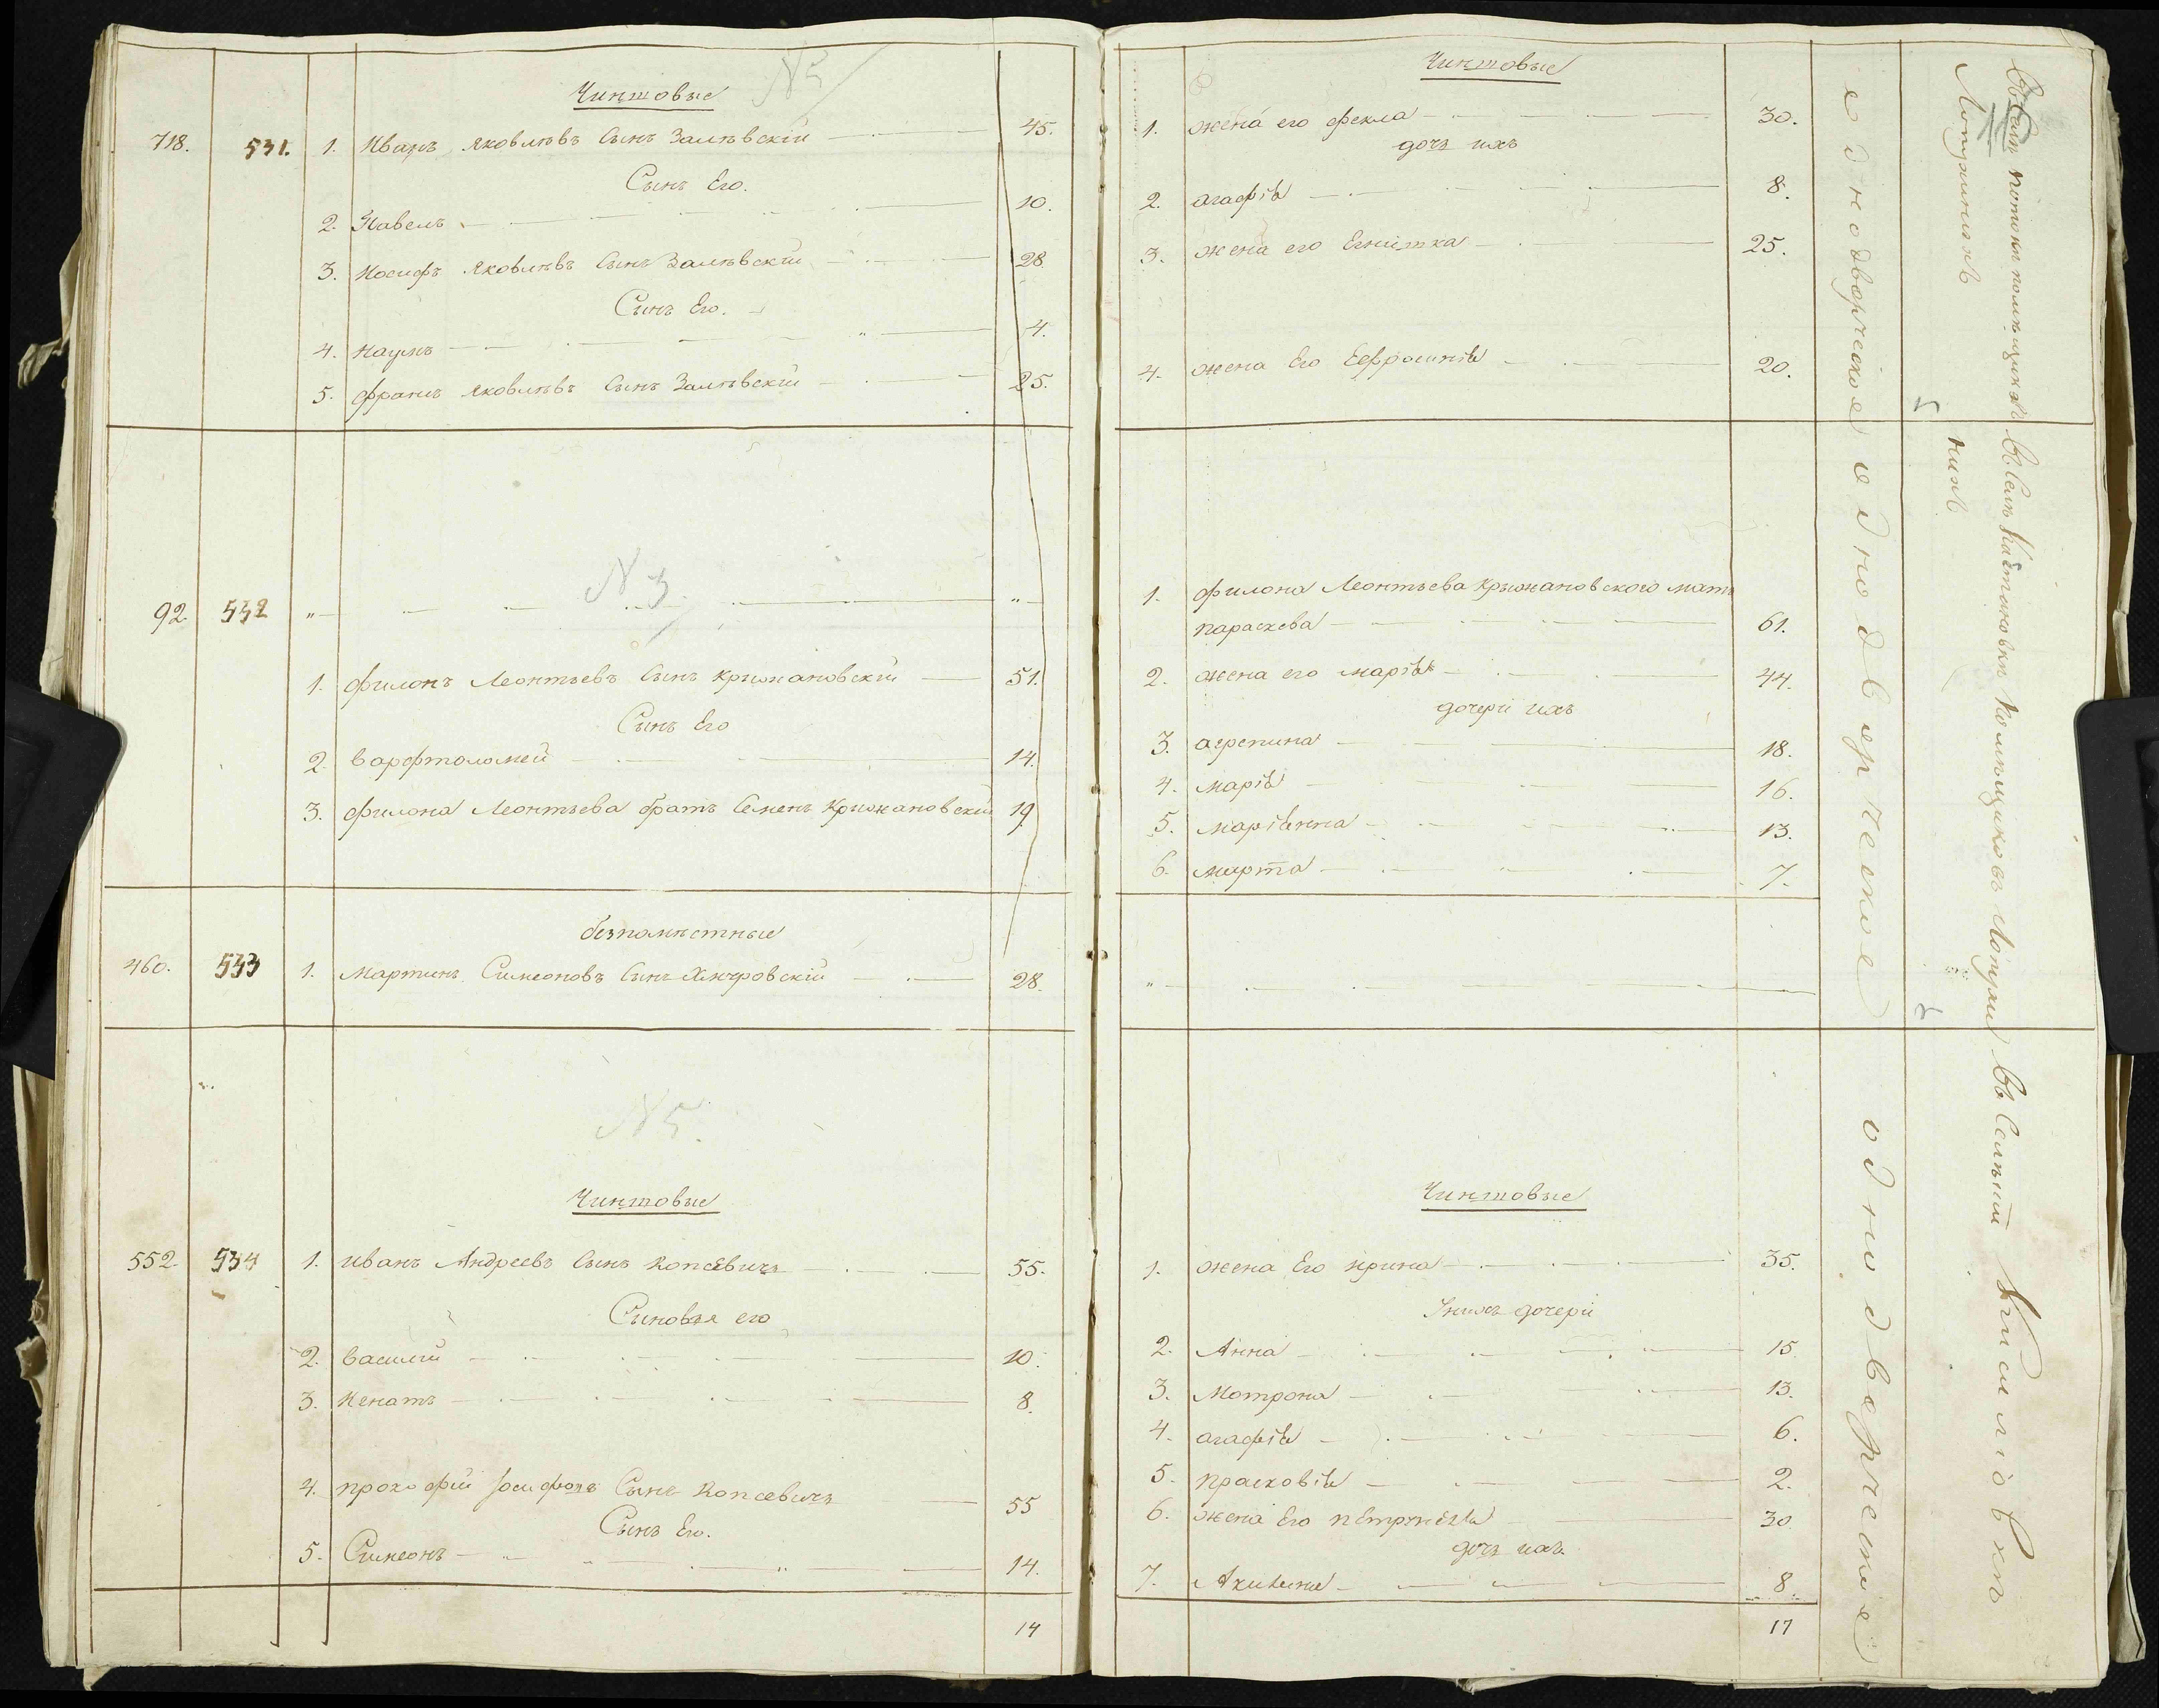 N 5
Чиншовые
718. 531. 1. Иванъ Яковлѣвъ Сынъ Залѣвскій 45.
Сынъ Его.
2. Павелъ 10.
3. Иосифъ Яковлѣвъ Сынъ Залѣвскій 28
Сынъ Его.
4. Наумъ 4.
5. Францъ Яковлѣвъ Сынъ Залѣвскій 25.
N 3
92. 532 " "
1. Филонъ Леонтьевъ Сынъ Крыжановскій 51.
Сынъ Его
2. Варфтоломей 14.
3. Филона Леонтьева братъ Семенъ Крижановскій 19
безпомѣстные
460. 533 1. Мартинъ Симеоновъ Сынъ 28.
N 5.
Чиншовые
552. 534 1. Иванъ Андреевъ Сынъ Копсевичъ 55.
Сыновья его
2. Василій 10.
3. Игнатъ 8.
4. Прокофій Іосифовъ Сынъ Копсевичъ 55
Сынъ Его.
5. Симеонъ 14.
14
Чиншовые
1. жена его Фекла 30.
дочь ихъ
2. Агафія 8.
3. жена его 25.
4. жена Его Ефросинія 20.
1. Филона Леонтьева Крыжановского мать
Параскева 61.
2. жена его Марія 44.
дочери ихъ
3. Агрепина 18.
4. Марія 16.
5. Маріянна 13.
6. Марта 7.
"
Чиншовые
1. жена Его Ирина 35.
Унихъ дочери
2. Анна 15
3. Мотрона 13.
4. Агафія 6.
5. Прасковія 2.
6. жена Его 30
дочь ихъ.
7. Акилина 8.
17
однодворческое
однодворческое
однодворческое
5
3